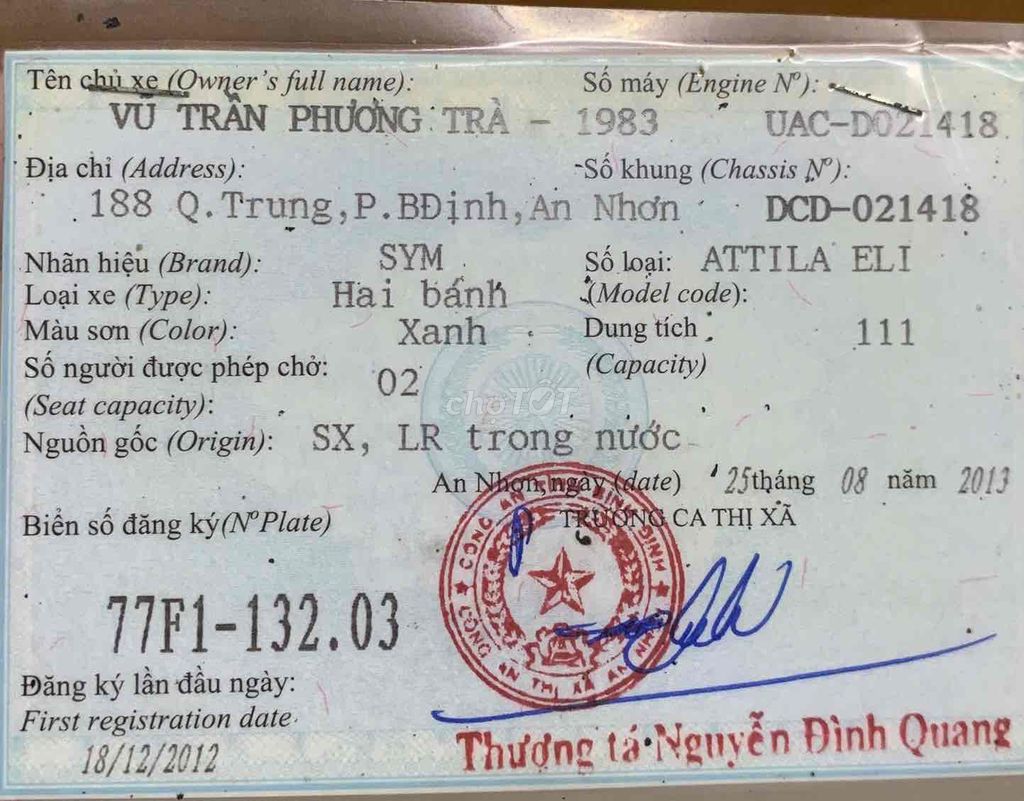 Tên chủ xe (Owner's full name):
VŨ TRẦN PHƯƠNG TRÀ - 1983
Số máy (Engine Nº):
UAC-D021418
Địa chỉ (Address):
188 Q.Trung,P.BĐịnh,An Nhơn
Số khung (Chassis Nº):
DCD-021418
Nhãn hiệu (Brand): SYM
Số loại: ATTILA ELI
(Model code):
Loại xe (Type): Hai bánh
Màu sơn (Color): Xanh
Dung tích 111
(Capacity)
Số người được phép chở: 02
(Seat capacity):
chợTỐT
Nguồn gốc (Origin): SX, LR trong nước
An Nhơn,ngày (date) 25tháng 08 năm 2013
TRƯỞNG CA THỊ XÃ
Biển số đăng ký(NºPlate)
77F1-132.03
CÔNG AN TỈNH BÌNH ĐỊNH
CÔNG AN THỊ XÃ AN NHƠN
Đăng ký lần đầu ngày:
First registration date
18/12/2012
Thượng tá Nguyễn Đình Quang